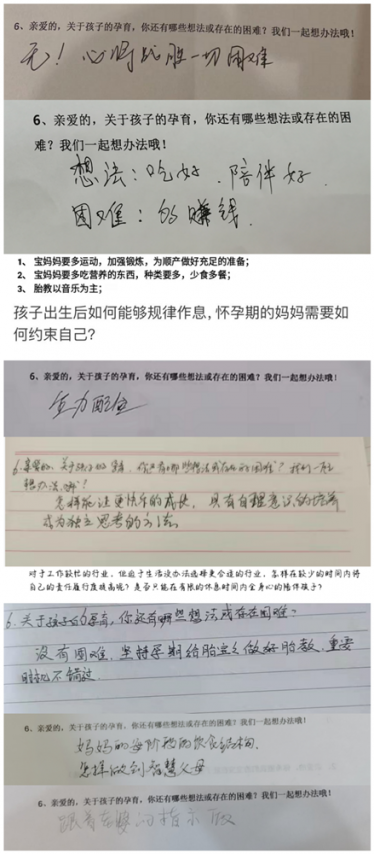 6、亲爱的，关于孩子的孕育，你还有哪些想法或存在的困难？我们一起想办法哦！
无！必将战胜一切困难
6、亲爱的，关于孩子的孕育，你还有哪些想法或存在的困
难？我们一起想办法哦！
想法：吃好、陪伴好
困难：的赚钱
1、 宝妈妈要多运动，加强锻炼，为顺产做好充足的准备；
2、 宝妈妈要多吃营养的东西，种类要多，少食多餐；
3、 胎教以音乐为主；
孩子出生后如何能够规律作息，怀孕期的妈妈需要如
何约束自己？
6、亲爱的，关于孩子的孕育，你还有哪些想法或存在的困难？我们一起想办法哦！
全力配合
6、亲爱的，关于孩子的孕育，你还有哪些想法或存在的困难？我们一起
想办法哦！
怎样能让更快乐的成长，具有自理意识的培养
成为独立思考的方法。
对于工作较忙的行业，但迫于生活没办法选择更合适的行业，怎样在较少的时间内将
自己的责任履行度提高呢？是否只能在有限的休息时间内全身心的陪伴孩子？
6、关于孩子的孕育，你还有哪些想法或存在困难？
没有困难，坚持孕期给胎宝宝做好胎教，重要
时机不错过
6、亲爱的，关于孩子的孕育，你还有哪些想法或存在的困难？我们一起想办法哦！
妈妈的每阶段的饮食结构，
怎样做到智慧父母
6、亲爱的，关于孩子的孕育，你还有哪些想法或存在的困难？我们一起想办法哦！
跟着老婆的指示做